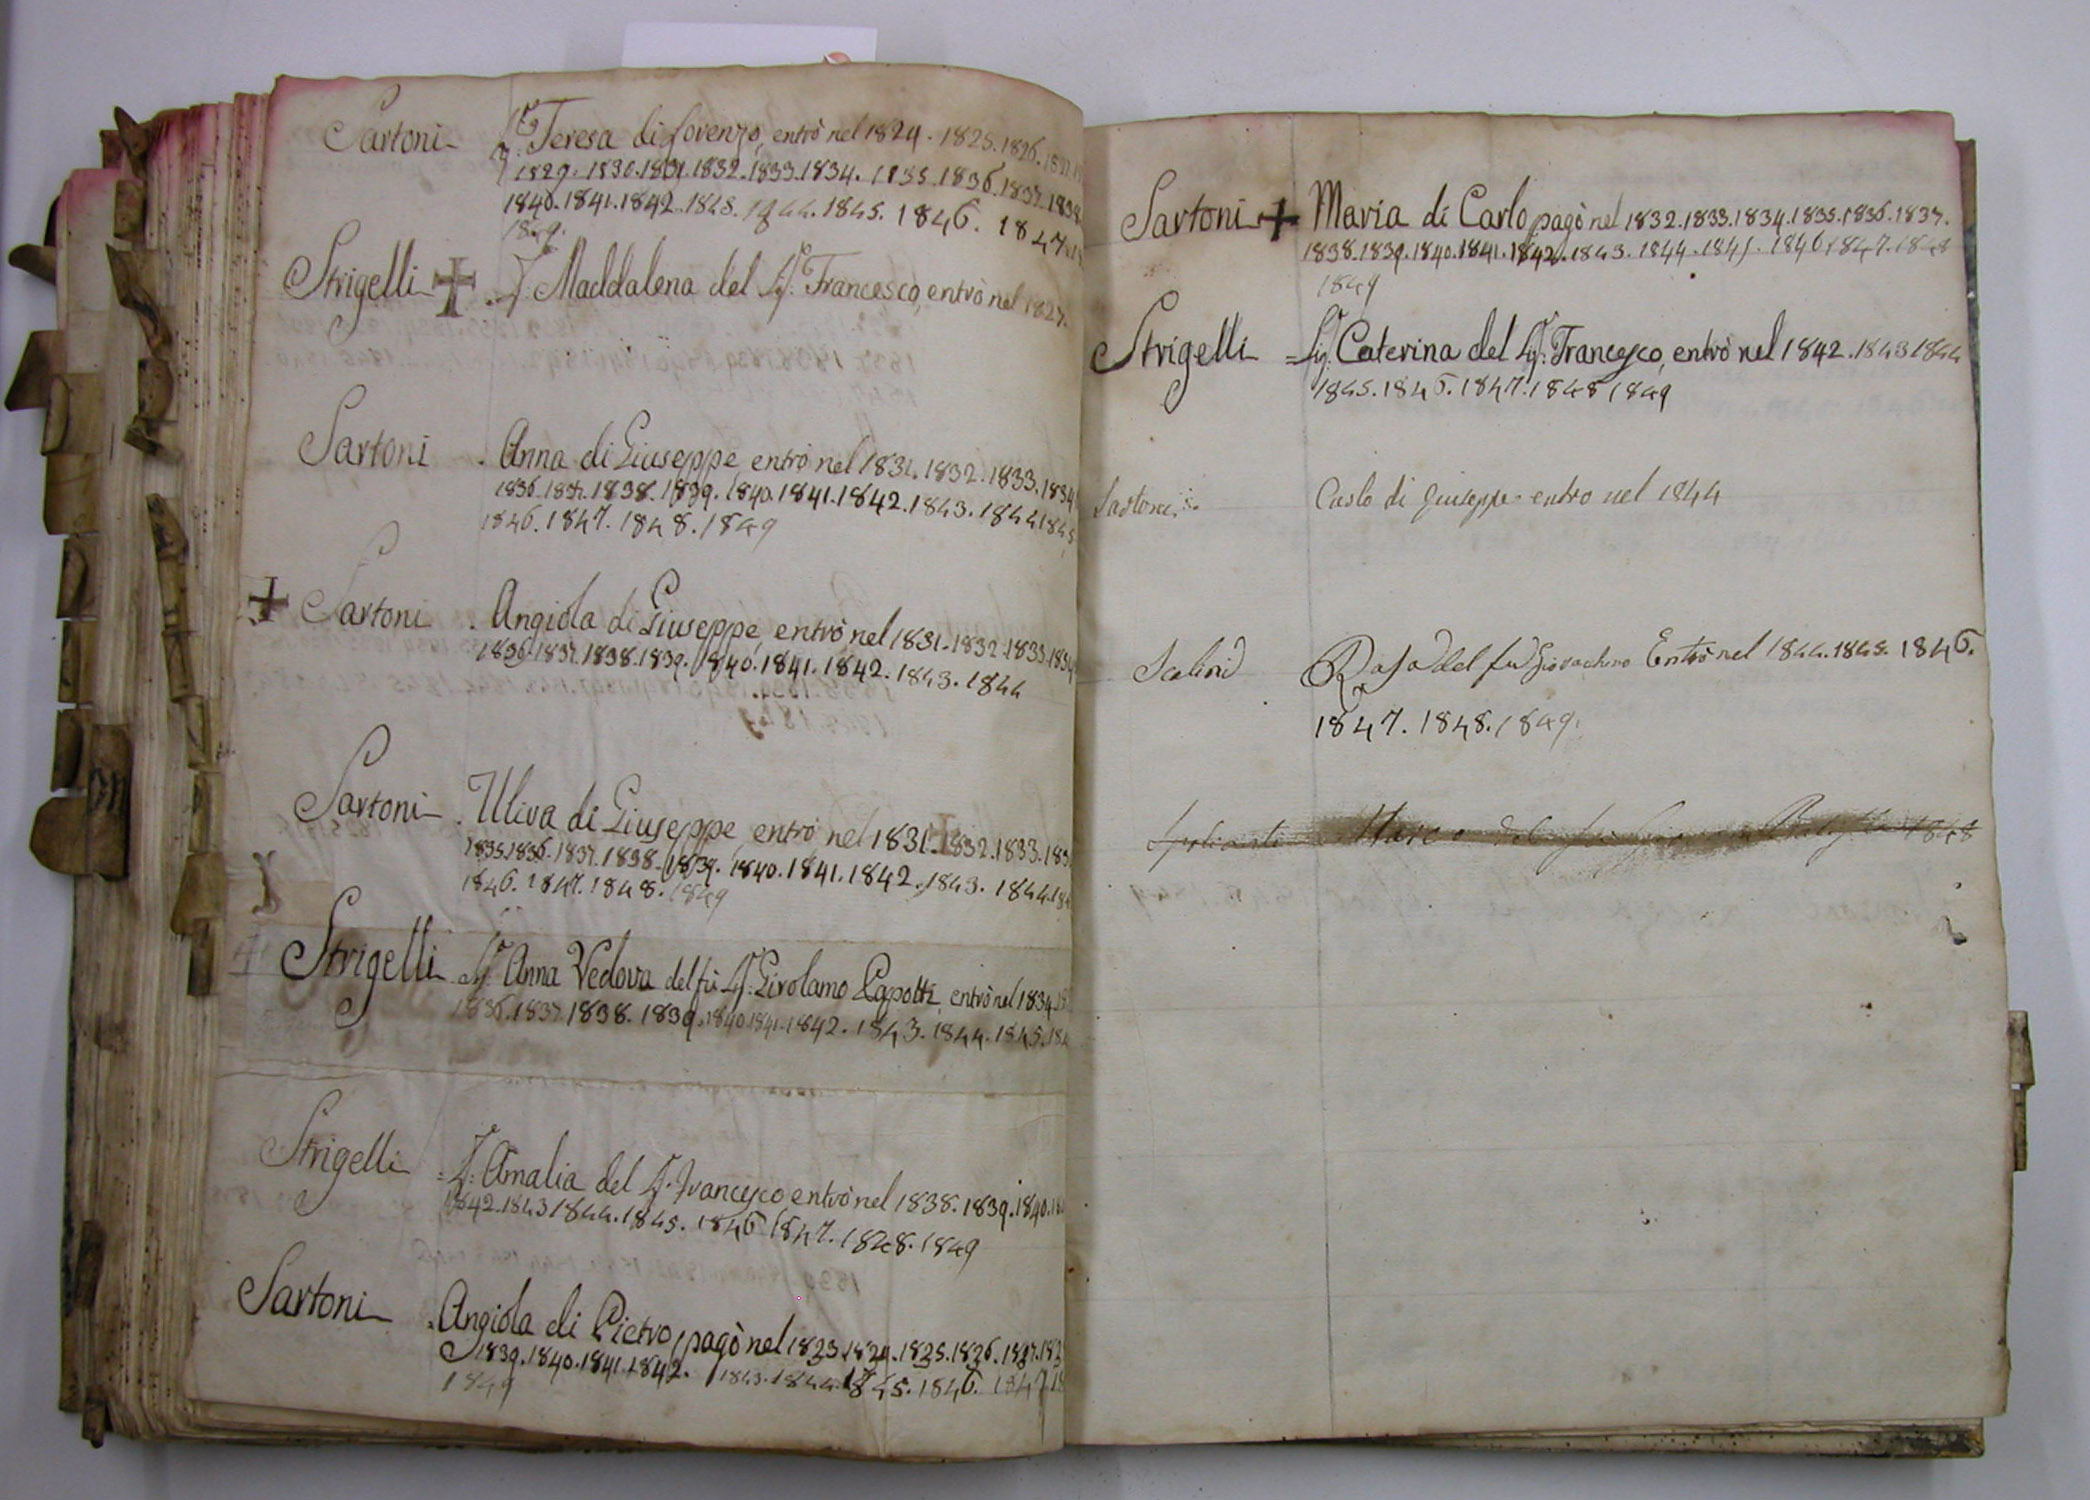 Sartoni Teresa di Lorenzo, entrò nel 1824. 1825. 1826.
1829. 1830. 1831. 1832. 1833. 1834. 1835. 1836. 1837. 1838.
1840. 1841. 1842. 1843. 1844. 1845. 1846. 1847.
1849.
Strigelli Maddalena del Sig. Francesco, entrò nel 1827.
Sartoni Anna di Giuseppe, entrò nel 1831. 1832. 1833. 1834
1836. 1837. 1838. 1839. 1840. 1841. 1842. 1843. 1844 1845
1846. 1847. 1848. 1849
Sartoni Angiola di Giuseppe, entrò nel 1831. 1832. 1833. 1834
1836. 1837. 1838. 1839. 1840. 1841. 1842. 1843. 1844
Sartoni Uliva di Giuseppe, entrò nel 1831. 1832. 1833.
1835. 1836. 1837. 1838. 1839. 1840. 1841. 1842. 1843. 1844.
1846. 1847. 1848. 1849
Strigelli Sig. Anna Vedova del fù Sig. Girolamo Capotti, entrò nel 1834.
1836. 1837. 1838. 1839. 1840. 1841. 1842. 1843. 1844. 1845.
Strigelli Sig. Amalia del Sig. Francesco entrò nel 1838. 1839. 1840.
1842. 1843 1844. 1845. 1846 1847. 1848. 1849
Sartoni Angiola di Pietro, pagò nel 1823. 1824. 1825. 1826. 1827.
1839. 1840. 1841. 1842. 1843. 1844. 1845. 1846. 1847
1849
Sartoni + Maria di Carlo, pagò nel 1832. 1833. 1834. 1835. 1836. 1837.
1838. 1839. 1840. 1841. 1842. 1843. 1844. 1845. 1846 1847. 1848
1849
Strigelli = Sig. Caterina del Sig. Francesco, entrò nel 1842. 1843 1844
1845. 1846. 1847. 1848 1849
Sartoni Carlo di Giuseppe entro nel 1844
Scalini Rosa del fu Giovachino Entrò nel 1844. 1845. 1846.
1847. 1848. 1849.
Marco del fu 1848